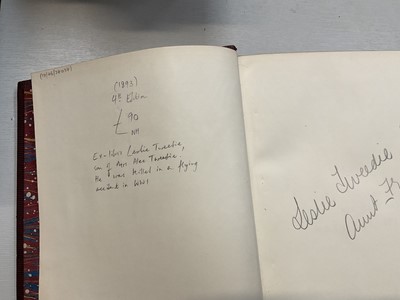 (1893)
9th Edition
£90
NM
Ex-libris Leslie Tweedie,
son of Mrs Alec Tweedie.
He was killed in a flying
accident in WW1
Leslie Tweedie
Aunt